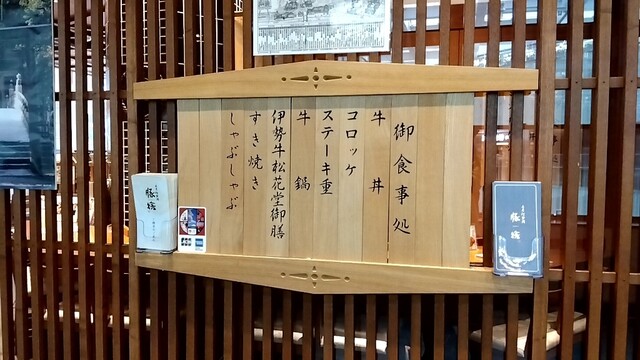 御食事処
牛丼
コロッケ
ステーキ重
牛鍋
伊勢牛松花堂御膳
すき焼き
しゃぶしゃぶ